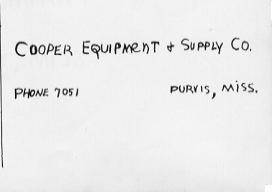 COOPER EQUIPMENT & SUPPLY CO.
PHONE 7051 PURVIS, MISS.